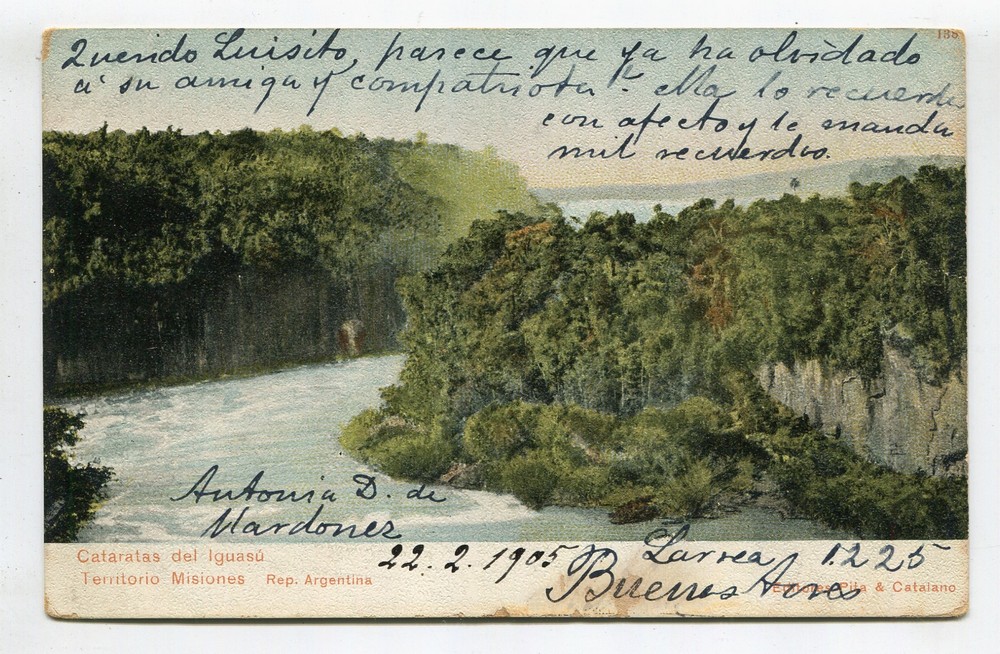 138
Querido Luisito, parece que ya ha olvidado
á su amiga y compatriota. Ella lo recuerda
con afecto y le manda
mil recuerdos.
Antonia D. de
Mardonez
Cataratas del Iguasú
Territorio Misiones Rep. Argentina
22.2.1905
Larrea 1225
Buenos Aires
Editores Pita & Catalano